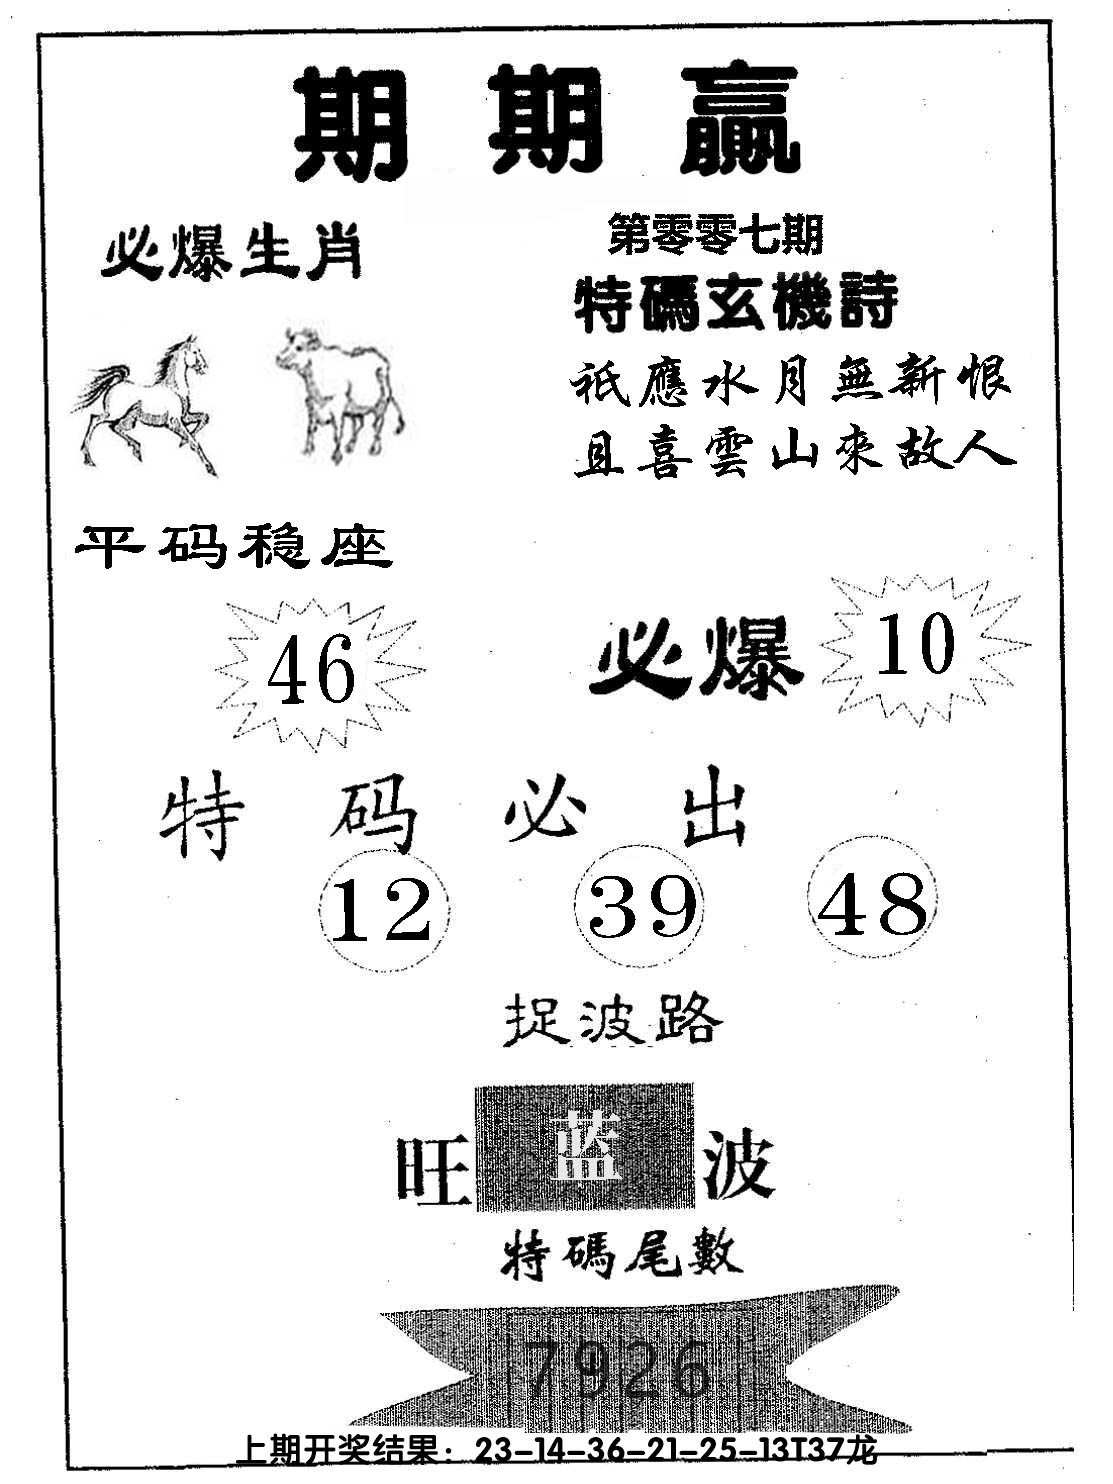 期期赢
必爆生肖
第零零七期
特碼玄機詩
祇應水月無新恨
且喜雲山來故人
平码稳座
46
必爆
10
特码必出
12 39 48
捉波路
旺蓝波
特碼尾數
7926
上期开奖结果：23-14-36-21-25-13T37龙